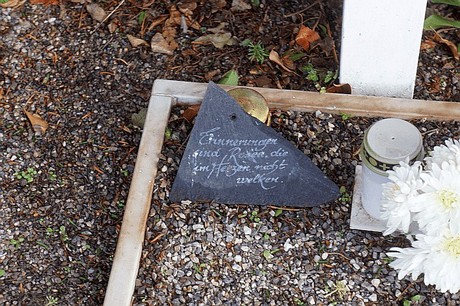 Erinnerungen
sind Rosen, die
im Herzen nicht
welken.